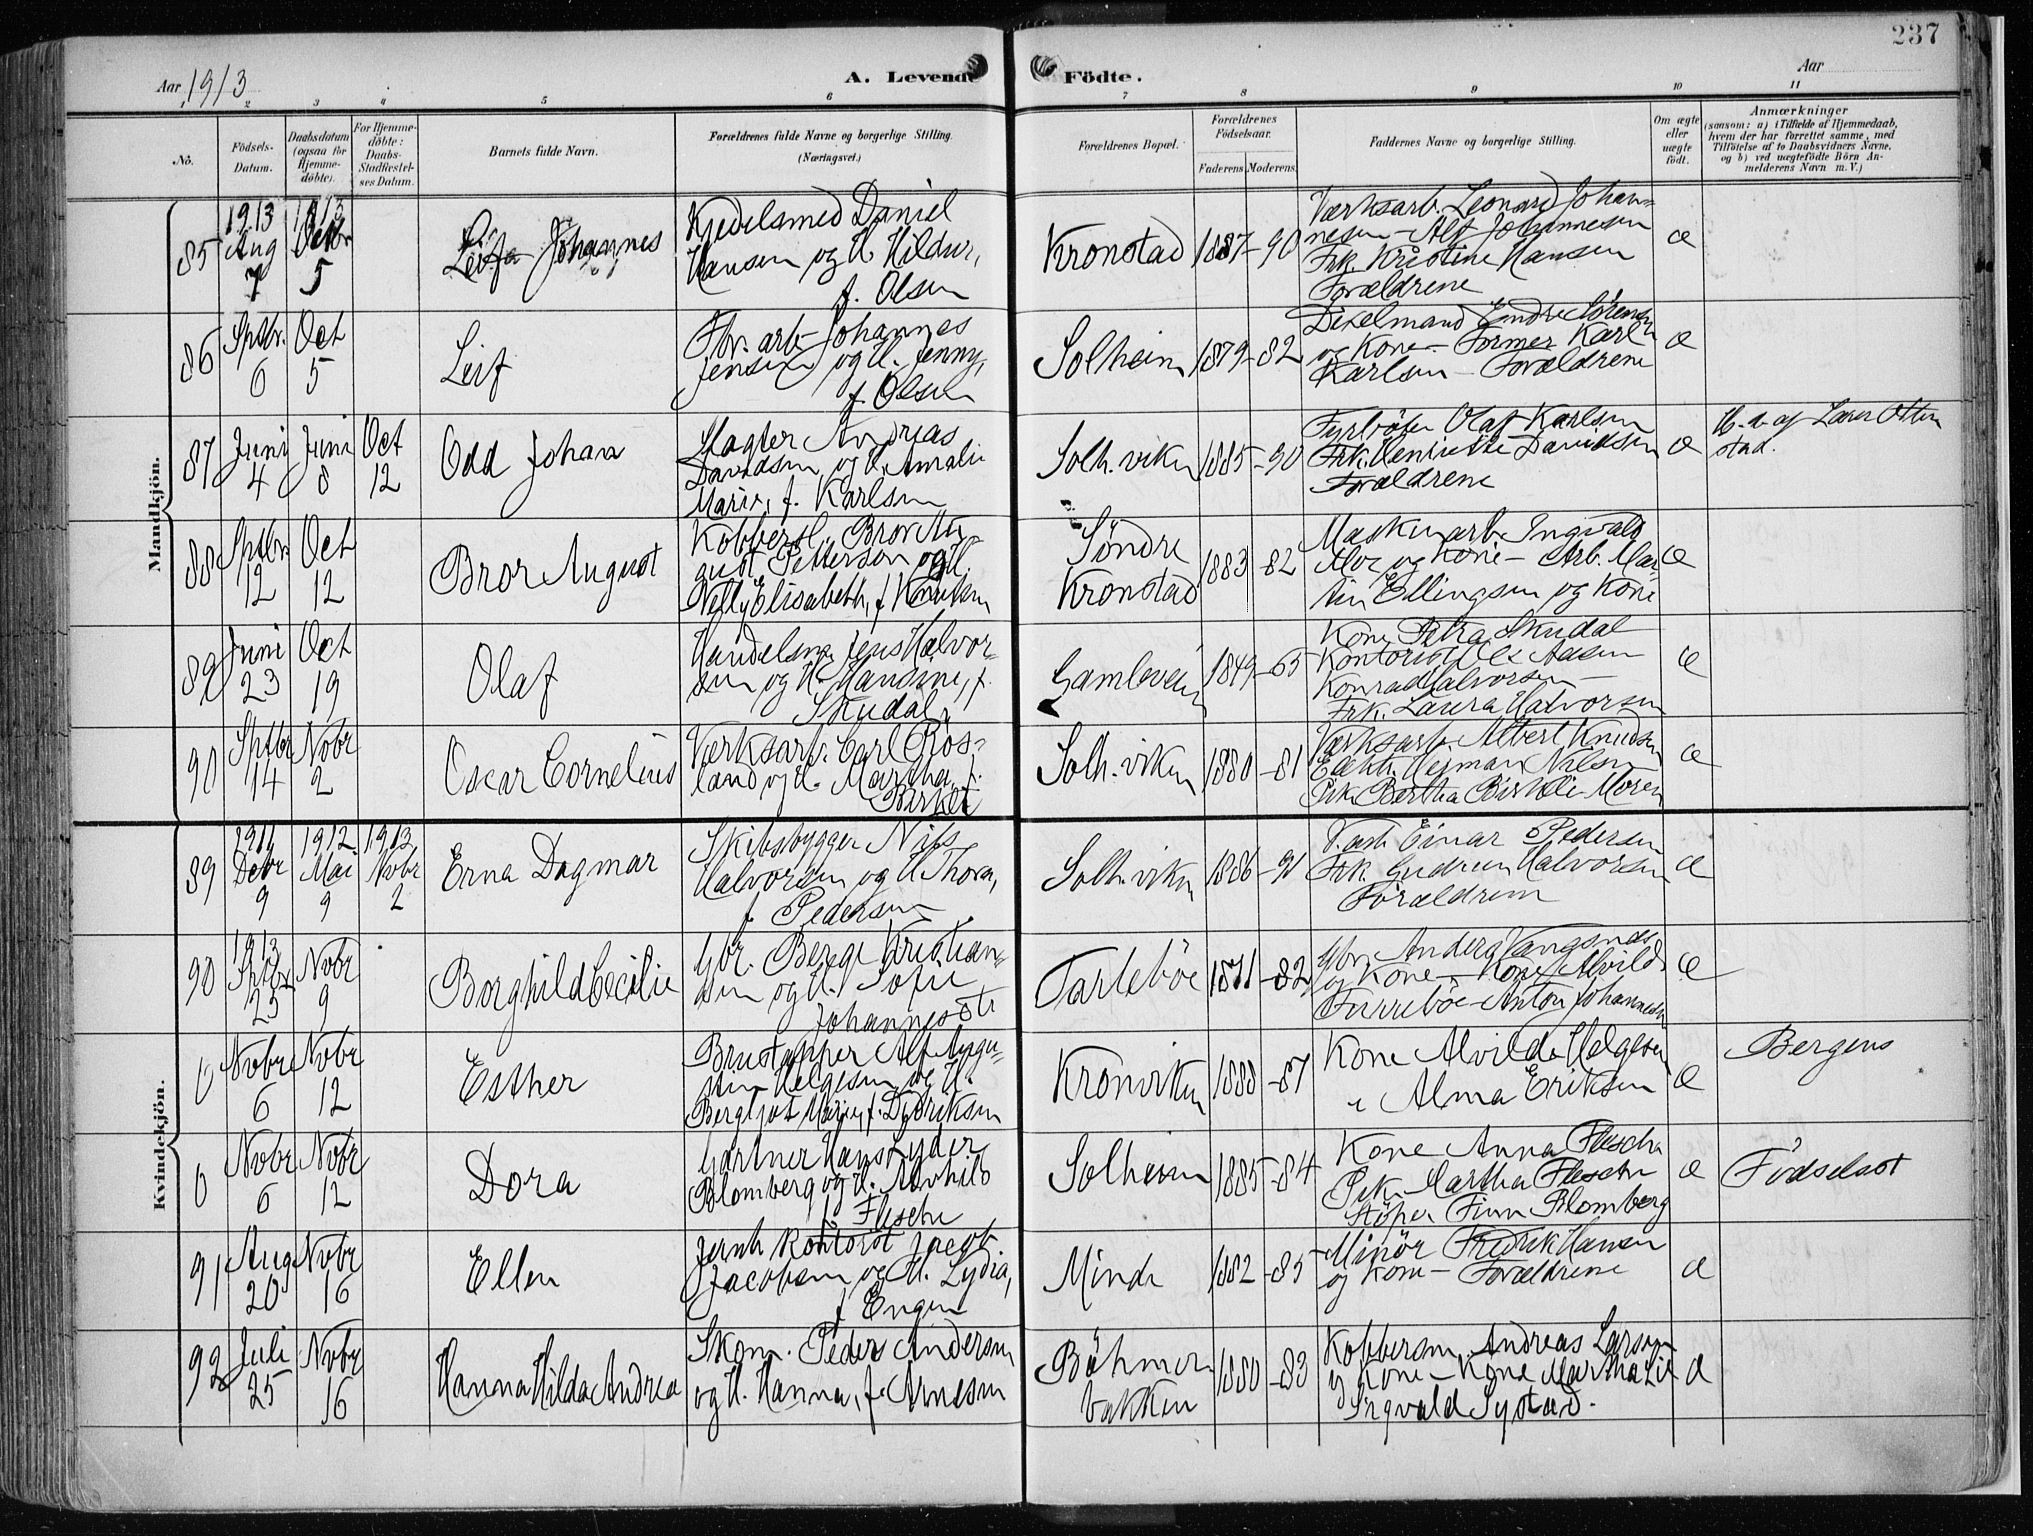 237
Aar 1913
A. Levende Födte.
Aar
1 2 3 4 5 6 7 8 9 10 11
No.
Födsels-Datum.
Daabsdatum (ogsaa for Hjemme-döbte).
For Hjemme-döbte: Daabs-Stadfæstelses Datum.
Barnets fulde Navn.
Forældrenes fulde Navne og borgerlige Stilling. (Næringsvei.)
Forældrenes Bopæl.
Forældrenes Födselsaar.
Faderens. Moderens.
Faddernes Navne og borgerlige Stilling.
Om ægte eller uægte födt.
Anmærkninger
(saasom: a) i Tilfælde af Hjemmedaab, hvem der har forrettet samme, med Tilföielse af to Daabsvidners Navne, og b) ved uægtefödte Börn Anmelderens Navn m. V.)
Mandkjön.
85 1913 Aug 7 1913 Octbr 5 Johannes
Kjedelsmed Daniel
Hansen og H. Hildur,
f. Olsen
Kronstad 1887-90
Værksarb. Leonard Johan-
nesen - Alf Johannesen
Frk. Kristine Hansen
Forældrene
æ
86 Sptbr. 6 Oct 5 Leif
Fbr. arb. Johannes
Jensen og H. Jenny,
f. Olsen
Solheim 1879-82
Endre Sörensen
og Kone - Former Karl
Karlsen - Forældrene
æ
87 Juni 4 Juni 8 Oct 12 Odd Johan
Slagter Andreas
Davidsen og H. Amalie
Marie, f. Karlsen
Solh. viken 1885-90
Fyrböter Olaf Karlsen
Frk. Henriette Davidsen
Forældrene
æ
H. d. af Lærer Otten
stad.
88 Sptbr 12 Oct 12 Bror August
Kobbersl. Bror Au-
gust Petterson og H.
Nelly Elisabeth, f. Knutsen
Söndre
Kronstad
1883-82
Maskinarb. Ingvald
og Kone - Arb. Mar-
tin Ellingsen og Kone
æ
89 Juni 23 Oct 19 Olaf
Handelsm. Jens Halvor-
sen og H. Mandine, f.
Skudal
Gamleveien 1849-65
Kone Petra Skudal
Kontorist Ole Aasen
Konrad Halvorsen -
Frk. Laura Halvorsen
æ
90 Sptbr 14 Nobr 2 Oscar Cornelius
Værksarb. Carl Ros-
land og H. Martha, f.
Solh. viken 1880-81
Værksarb. Albert Knudsen
Herman Nilsen
Pik. Bertha - Moren
æ
Kvindekjön.
89 1911 Debr 9 1912 Mai 9 1913 Nobr 2 Erna Dagmar
Skibsbygger Nils
Halvorsen og H. Thora,
f. Pedersen
Solh. viken 1886-91
V. arb. Einar Pedersen
Frk. Gudrun Halvorsen
Forældrene
æ
90 1913 Sptbr 25 Nobr 9 Borghild Cecilie
Gbr. Berge Kristian-
sen og H. Sofie
Johannesdtr
Tarlebö 1871-82
Gbr. Anders Vangsnes
og Kone - Kone Alvilde
Anton Johannesen
æ
0 Nobr 6 Nobr 12 Esther
Brustapper Alf Augu-
stin Helgesen og H.
Bergljot Marie, f. Dydriksen
Kronviken 1888-87
Kone Alvilde Helgesen
" Alma Eriksen
æ
Bergens
0 Nobr 6 Nobr 12 Dora
Gartner Hans Lyder
Blomberg og H. Alvhild
f. Flesche
Solheim 1885-84
Kone Anna Flesche
Pik. Martha Flesche
Stöper Finn Blomberg
æ
Födselsst
91 Aug 20 Nobr 16 Ellen
Jernb. Kontorist Jacob
Jacobsen og H. Lydia,
f. Engen
Minde 1882-85
Minör Fredrik Hansen
og Kone - Forældrene
æ
92 Juli 25 Nobr 16 Hanna Hilda Andrea
Skom. Peder Andersen
og H. Hanna, f. Arnesen
Böhmer
bakken
1880-83
Kobbersm. Andreas Larsen
og Kone - Kone Martha Lie
Sigvald Systad.
æ